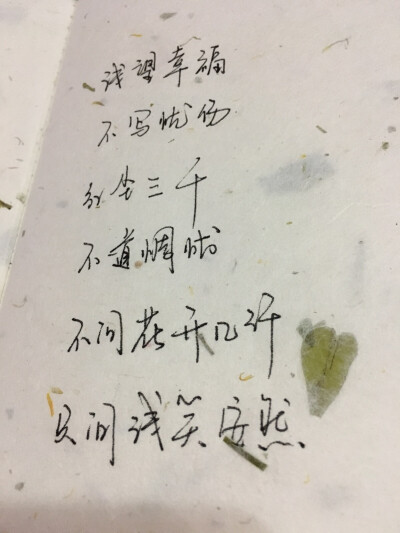 浅望幸福
不写忧伤
红尘三千
不道惆怅
不问花开几许
只问浅笑安然